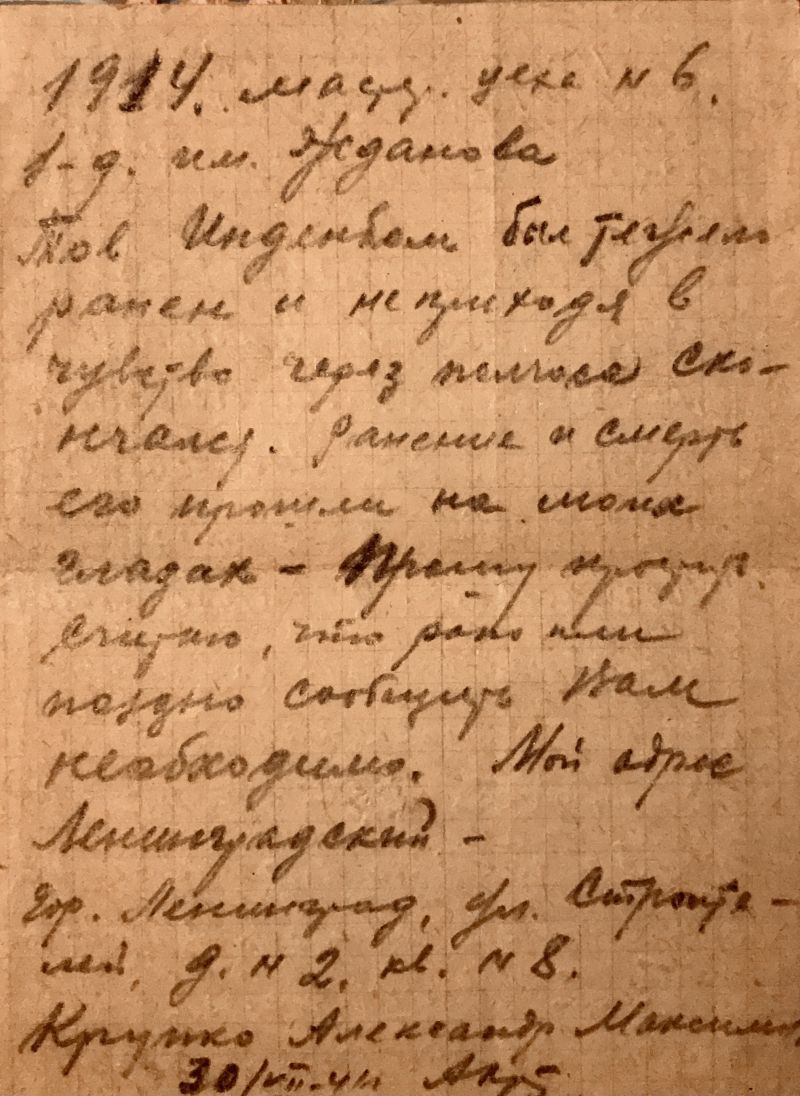 1914. маст. цеха н 6.
з-д. им. Жданова
Тов Инденбом был тяжело
ранен и неприходя в
чувство через полчаса ско-
нчался. Ранение и смерть
его прошли на моих
глазах - Прошу
Считаю, что рано или
поздно сообщить Вам
необходимо. Мой адрес
Ленинградский -
гор. Ленинград, ул. Строите-
лей, д. н 2, кв. н 8.
Крупко Александр Максимов
30/VII-41